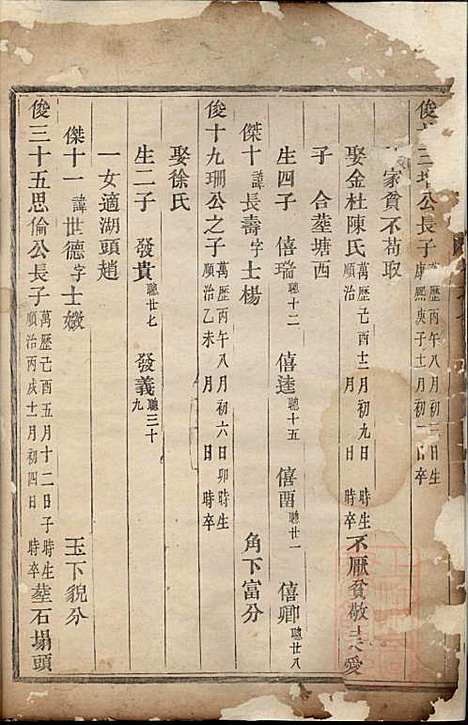 俊 三 公長子 萬歷丙午八月初三日 生 康熙庚子十一月初
家貧不苟取
娶金杜陳氏 萬歷己酉十二月初九日 時生 順治 年 月 日 時卒 不厭貧敬夫愛
子 合葬塘西
生四子 僖瑞聰十二 僖逵聰十五 僖酉聰廿一 僖卿聰廿八
傑十諱長壽字士楊 角下富分
俊十九珊公之子 萬歷丙午八月初六日卯時生 順治乙未 月 日 時卒
娶徐氏
生二子 發貴聰廿七 發義聰三十九
一女適湖頭趙
傑十一諱世德字士 玉下貌分
俊三十五思倫公長子 萬歷己酉五月十二日子時生 順治丙戌十一月初四日 時卒 葬石塌頭